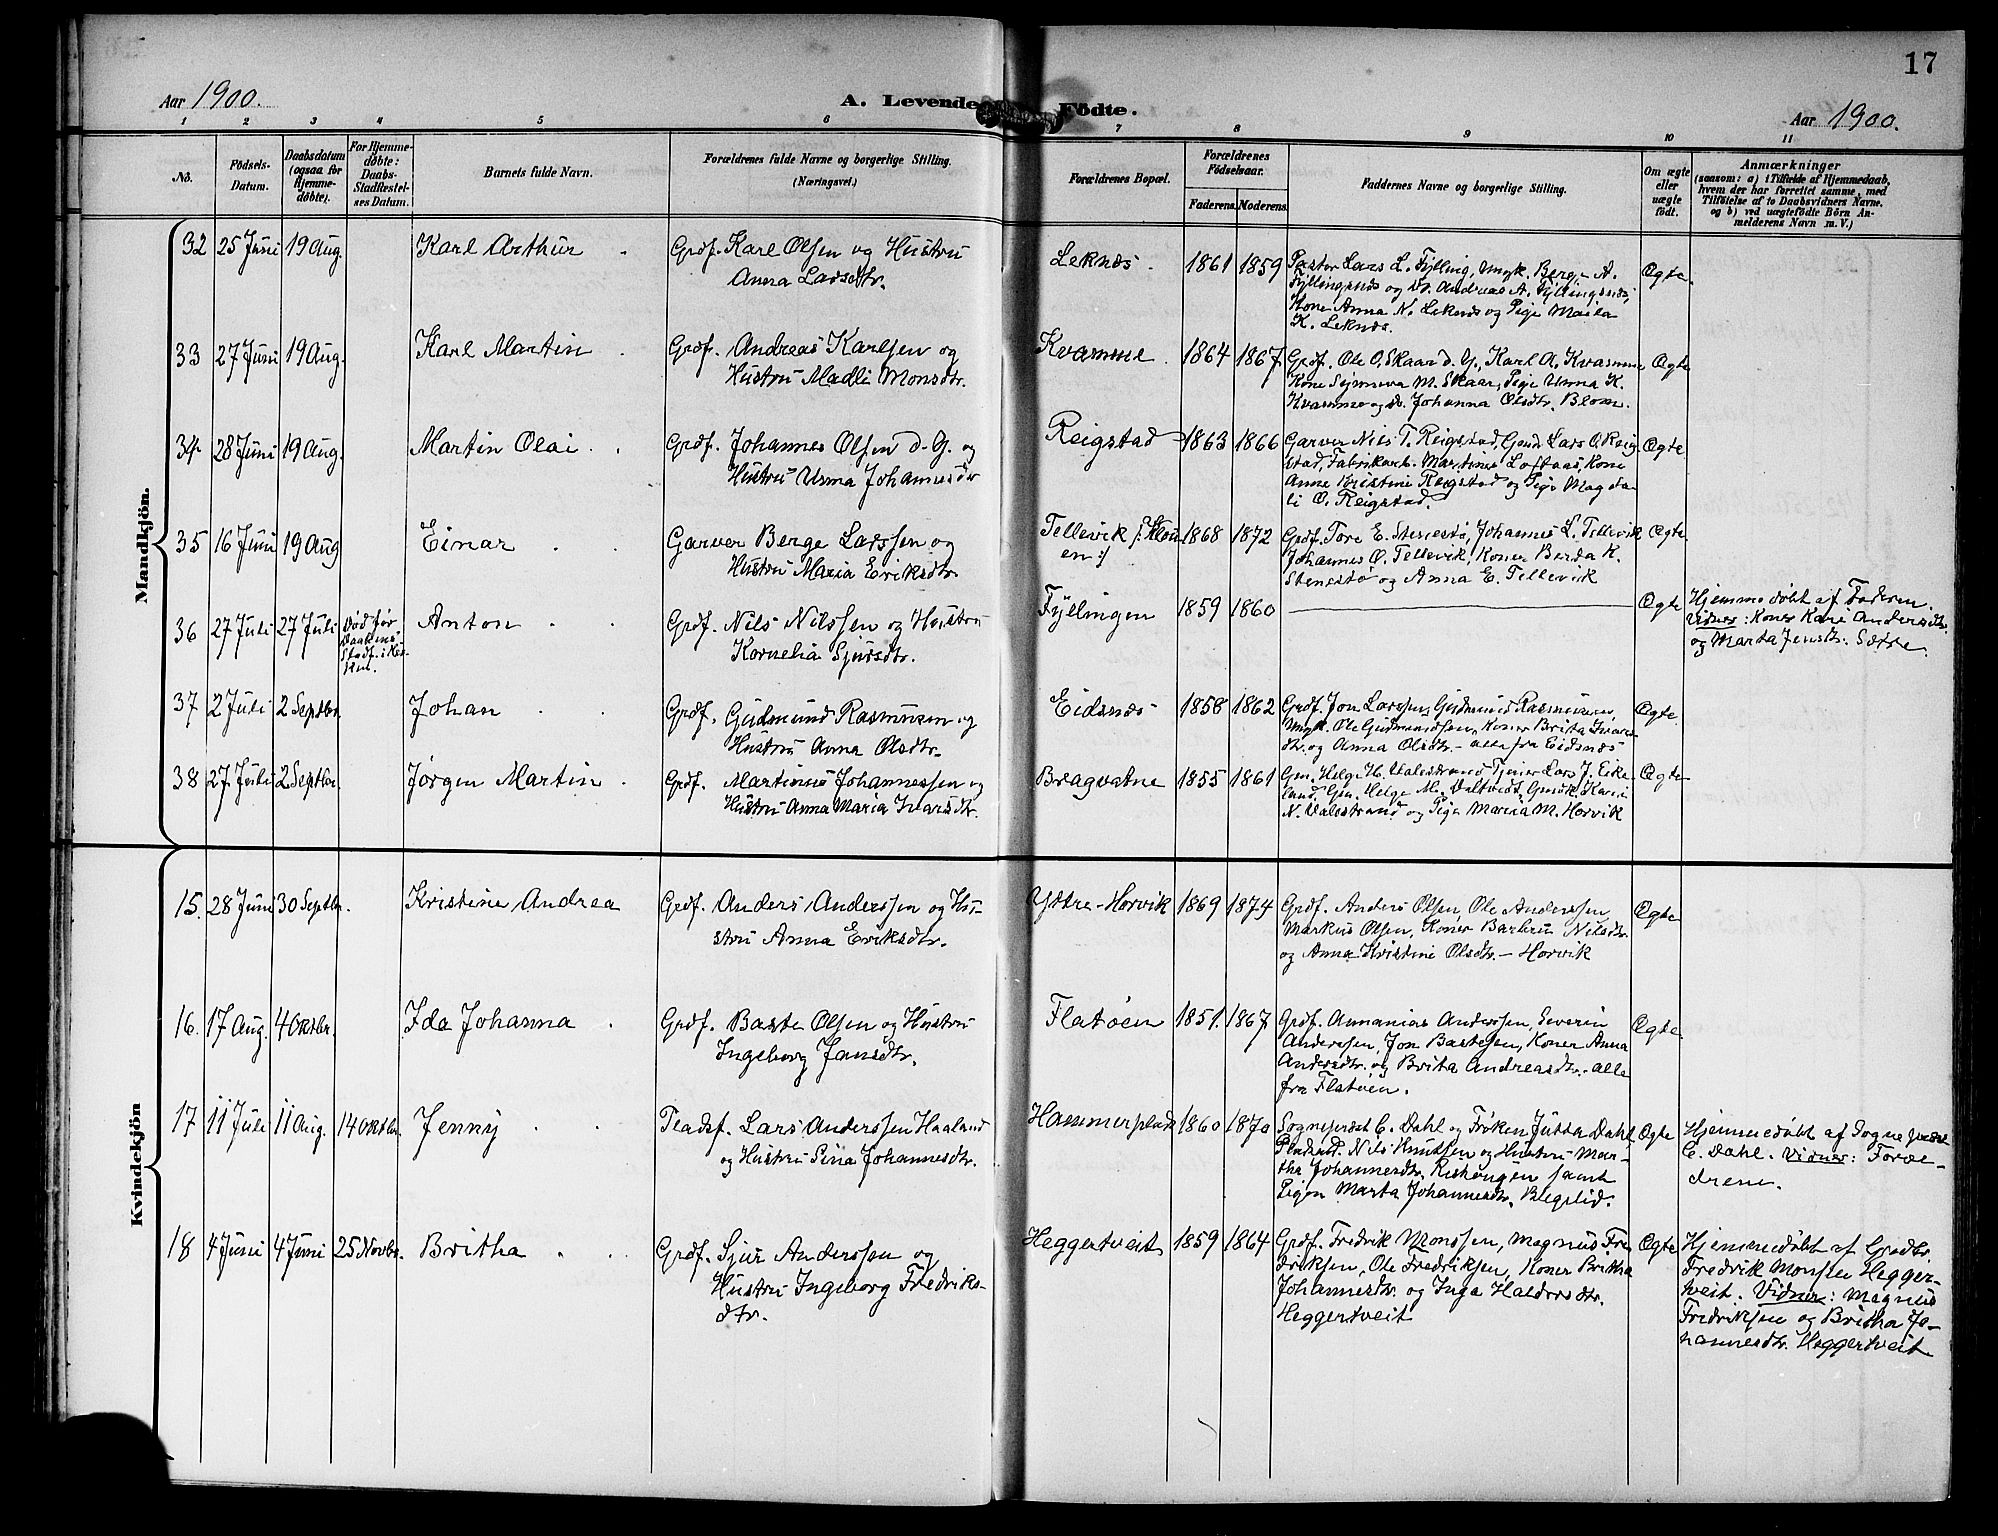 17
Aar 1900.
A. Levende Födte.
Aar 1900.
1 2 3 4 5 6 7 8 9 10 11
No.
Födsels-
Datum.
Daabsdatum
(ogsaa for
Hjemme-
döbte).
For Hjemme-
døbte:
Daabs-
Stadfæstel-
ses Datum.
Barnets fulde Navn.
Forældrenes fulde Navne og borgerlige Stilling.
(Næringsvei.)
Forældrenes Bopæl.
Forældrenes
Födselsaar.
Faderens. Moderens.
Faddernes Navne og borgerlige Stilling.
Om ægte
eller
uægte
födt.
Anmærkninger
(saasom: a) i Tilfælde af Hjemmedaab,
hvem der har forrettet samme, med
Tilföielse af to Daabsvidners Navne,
og b) ved uægtefödte Börn An-
melderens Navn m. V.)
Mandkjön.
32 25 Juni 19 Aug. Karl Arthur
Grdf. Karl Olsen og Hustru
Anna Larsdtr.
Leknæs. 1861 1859
Pastor Lars L. Fylling, Ungk. Berge A.
Fyllingsnæs og do. Andreas A. Fyllingsnæs,
Kone Anna N. Leknæs og Pige
K. Leknæs.
Ægte.
33 27 Juni 19 Aug. Karl Martin
Grdf. Andreas Karlsen og
Hustru Madli Monsdtr.
Kvamme. 1864 1867.
Grdf. Ole O. Skaar d. Y., Karl A. Kvamme
Kone M. Skaar, Pige Unna K.
Kvamme og do. Johanna Olsdtr. Blom.
Ægte
34 28 Juni 19 Aug. Martin Olai
Grdf. Johannes Olsen d. Y. og
Hustru Unna Johannesdtr
Reigstad 1863 1866
Garver Nils T. Reigstad, Lars O. Reig-
stad, Fabrikarb. Martines Loftaas, Kone
Anne Kristine Reigstad og Pige Magda-
li O. Reigstad.
Ægte
35 16 Juni 19 Aug Einar
Garver Berge Larssen og
Hustru Maria Eriksdtr.
Tellevik
en:/ 1868 1872
Grdf. Tore E. Stenestø, Johannes L. Tellevik
Johannes O. Tellevik, Koner Berta K.
Stenestø og Anna E. Tellevik
Ægte
36 27 Juli 27 Juli
Død før
Daabens
Stadf. i Kir-
ken.
Anton
Grdf. Nils Nilssen og Hustru
Kornelia Sjursdtr.
Fyllingen 1859 1860
Ægte
Hjemmedøbt af Faderen.
Vidner: Koner Kari Andersdtr.
og Marta Jensdtr. Sætre.
37 2 Juli 2 Septbr. Johan
Grdf. Gudmund Rasmussen og
Hustru Anna Olsdtr.
Eidsnæs 1858 1862
Grdf. Jon Larssen, Gudmund Rasmussen,
Ungk. Ole Gudmundssen, Koner Brita Ivars-
dtr. og Anna Olsdtr. – alle fra Eidsnæs
Ægte.
38 27 Juli 2 Septbr. Jørgen Martin
Grdf. Martinus Johannessen og
Hustru Anna Maria Ivarsdtr.
Bragvatne 1855 1861
Helge H. Valestrand, Tjener Lars J. Eike-
land, Helge M. Kari
N. Valestrand og Pige Marita M. Horvik
Ægte
Kvindekjön
15. 28 Juni 30 Septbr. Kristine Andrea
Grdf. Anders Anderssen og Hu-
stru Anna Eriksdtr.
Yttre-Horvik 1869 1874
Grdf. Anders Olsen, Ole Anderssen,
Markus Olsen, Koner Barbru Nilsdtr.
og Anna Kristine Olsdtr. – Horvik
Ægte
16. 17 Aug. 4 Oktbr. Ida Johanna
Grdf. Baste Olsen og Hustru
Ingeborg Jansdtr.
Flatøen 1851. 1867
Grdf. Annanias Anderssen, Severin
Anderssen, Jon Bastesen, Koner Anna
Andersdtr. og Brita Andreasdtr. – alle
fra Flatøen.
Ægte
17 11 Juli 11 Aug. 14 Oktbr. Jenny
Pladsf. Lars Anderssen Haaland
og Hustru Sina Johannesdtr.
Hammersplads 1860 1870
Sogneprest C. Dahl og Frøken Jutta Dahl,
Nils Knutsen og Hustru Mar-
tha Johannesdtr. Riskaugen samt
Pigen Marta Johannesdtr. Bleglid.
Ægte
Hjemmedøbt af Sogneprest
C. Dahl. Vidner: Foræl-
drene.
18 4 Juni 4 Juni 25 Novbr. Britha
Grdf. Sjur Anderssen og
Hustru Ingeborg Fredriks-
dtr.
Heggertveit 1859 1864
Grdf. Fredrik Monssen, Magnus Fre-
driksen, Ole Fredriksen, Koner Britha
Johannesdtr. og Inga Haldorsdtr.
Heggertveit
Ægte
Hjemmedøbt af Grdbr.
Fredrik Monsen Hegger-
tveit. Vidner: Magnus
Fredriksen og Britha Jo-
hannesdtr. Heggertveit